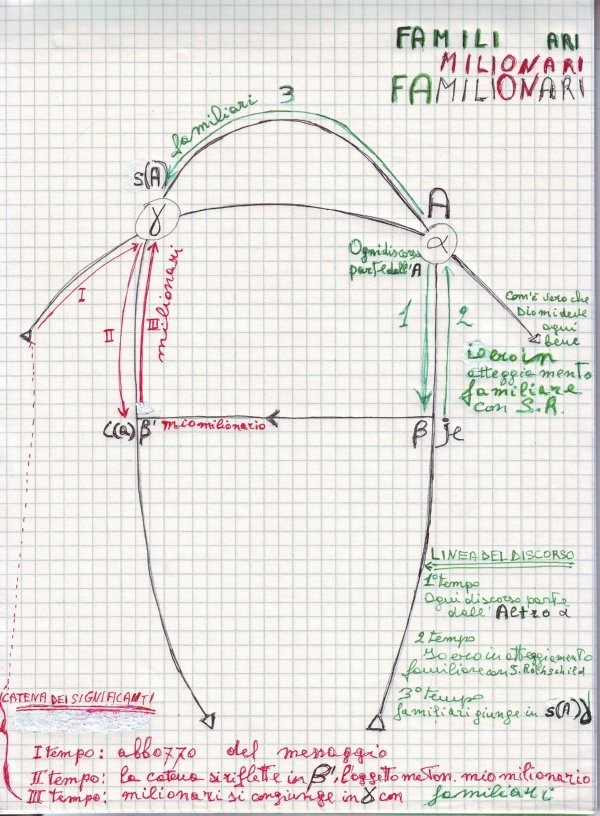 FAMILI ARI
MILIONARI
FAMILIONARI
familiari 3
S(A)
γ
A
α
Ogni discorso
parte dall'A
I
II
III
milionari
1
2
Com'è vero che
Dio mi deve
ogni
bene
io ero in
atteggiamento
familiare
con S.R.
β' mio milionario
β
je
LINEA DEL DISCORSO
1° tempo
Ogni discorso parte
dall'Altro α
2 tempo
Io ero in atteggiamento
familiare con S. Rothschild
3° tempo
familiari giunge in S(A)γ
CATENA DEI SIGNIFICANTI
I tempo: abbozzo del messaggio
II tempo: la catena si riflette in β' l'oggetto meton. mio milionario
III tempo: milionari si congiunge in γ con familiari